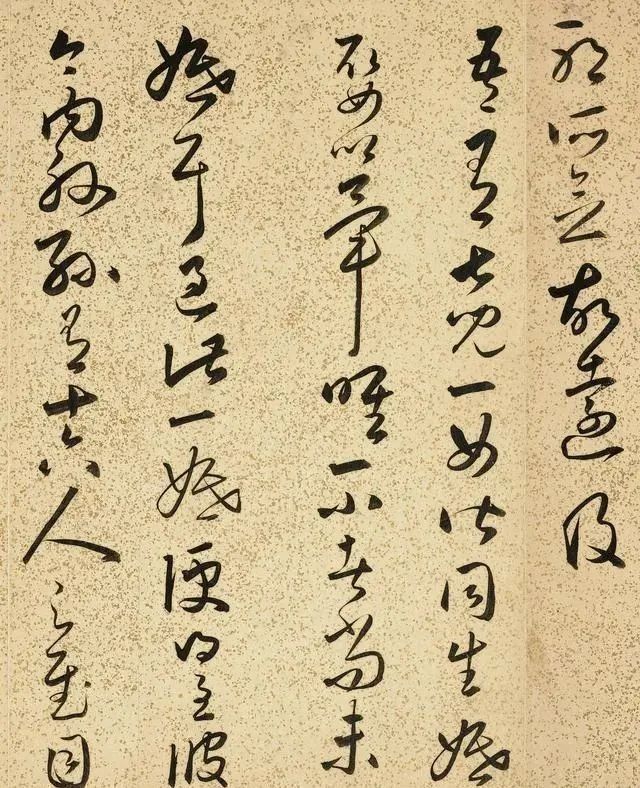 耶所念故遠及
吾有七兒一女皆同生婚
娶以畢唯一小者尚未
婚耳過此一婚便得至彼
今內外孫有十六人足慰目